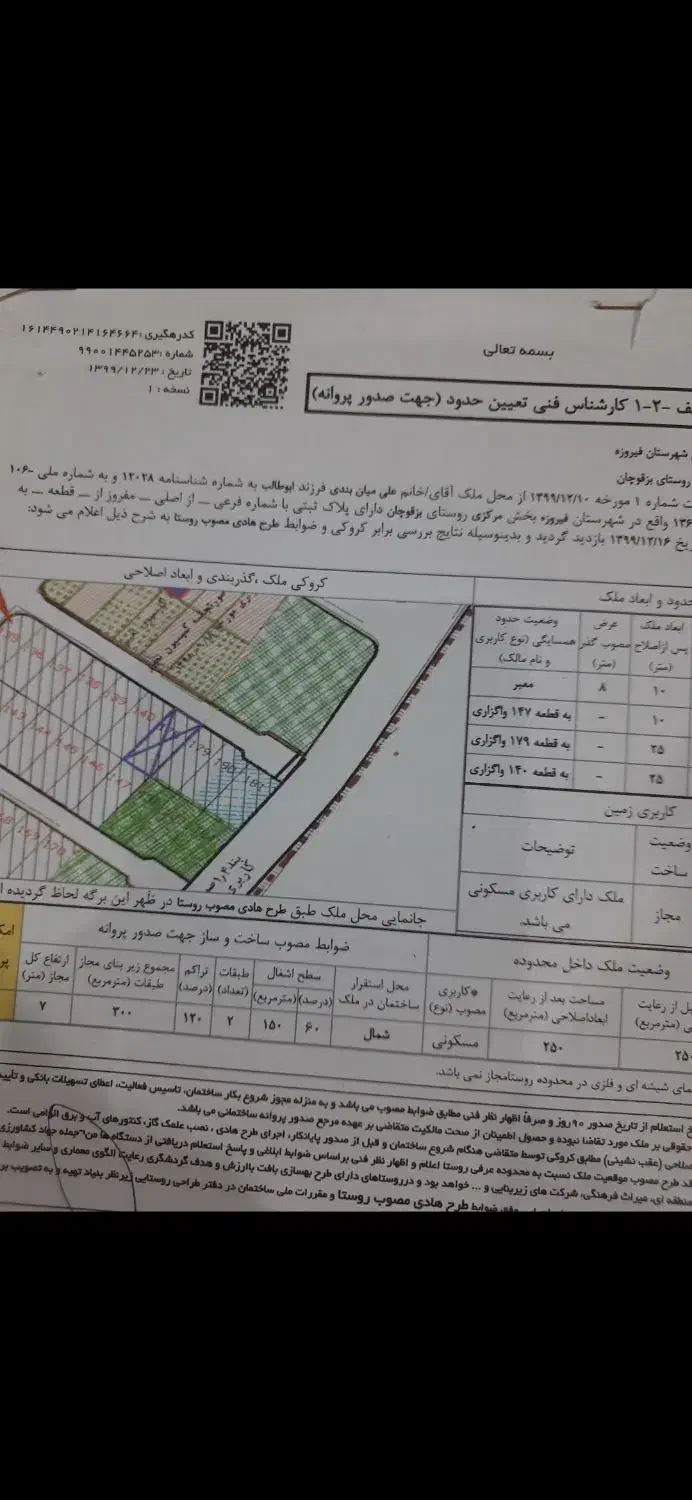 بسمه تعالی
کدرهگیری :۱۶۱۴۴۹۰۲۱۴۱۶۴۶۶۴
شماره :۹۹۰۰۱۴۴۵۲۵۳
تاریخ : ۱۳۹۹/۱۲/۲۳
نسخه : ۱
ف -۲-۱ کارشناس فنی تعیین حدود (جهت صدور پروانه)
شهرستان فیروزه
روستای بزقوچان
ت شماره ۱ مورخه ۱۳۹۹/۱۲/۱۰ از محل ملک آقای/خانم علی میان بندی فرزند ابوطالب به شماره شناسنامه ۱۲۰۲۸ و به شماره ملی ۱۰۶-
۱۳۶ واقع در شهرستان فیروزه بخش مرکزی روستای بزقوچان دارای پلاک ثبتی با شماره فرعی _ از اصلی _ مفروز از _ قطعه _ به
ریخ ۱۳۹۹/۱۲/۱۶ بازدید گردید و بدینوسیله نتایج بررسی برابر کروکی و ضوابط طرح هادی مصوب روستا به شرح ذیل اعلام می شود:
حدود و ابعاد ملک
ابعاد ملک پس ازاصلاح (متر)
عرض مصوب گذر (متر)
وضعیت حدود همسایگی (نوع کاربری و نام مالک)
۱۰ ۸ معبر
۱۰ - به قطعه ۱۴۷ واگزاری
۲۵ - به قطعه ۱۷۹ واگزاری
۲۵ - به قطعه ۱۴۰ واگزاری
کاربری زمین
وضعیت ساخت
توضیحات
مجاز
ملک دارای کاربری مسکونی می باشد.
کروکی ملک ،گذربندی و ابعاد اصلاحی
136 137 138 139 140
179 180 181
143 144 145 146 147
169 170
جانمایی محل ملک طبق طرح هادی مصوب روستا در ظهر این برگه لحاظ گردیده ا
وضعیت ملک داخل محدوده
ضوابط مصوب ساخت و ساز جهت صدور پروانه
مساحت بعد از رعایت ابعاداصلاحی (مترمربع)
*کاربری مصوب (نوع)
محل استقرار ساختمان در ملک
سطح اشغال
(درصد) (مترمربع)
طبقات (تعداد)
تراکم (درصد)
مجموع زیر بنای مجاز طبقات (مترمربع)
ارتفاع کل مجاز (متر)
۲۵۰ ۲۵۰ مسکونی شمال ۶۰ ۱۵۰ ۲ ۱۲۰ ۳۰۰ ۷
مای شیشه ای و فلزی در محدوده روستامجاز نمی باشد.
خ استعلام از تاریخ صدور ۹۰روز و صرفاً اظهار نظر فنی مطابق ضوابط مصوب می باشد و به منزله مجوز شروع بکار ساختمان، تاسیس فعالیت، اعطای تسهیلات بانکی و تأیید
حقوقی بر ملک مورد تقاضا نبوده و حصول اطمینان از صحت مالکیت متقاضی بر عهده مرجع صدور پروانه ساختمانی می باشد.
صلاحی (عقب نشینی) مطابق کروکی توسط متقاضی هنگام شروع ساختمان و قبل از صدور پایانکار، اجرای طرح هادی ، نصب علمک گاز، کنتورهای آب و برق الزامی است.
قد طرح مصوب موقعیت ملک نسبت به محدوده عرفی روستا اعلام و اظهار نظر فنی براساس ضوابط ابلاغی و پاسخ استعلام دریافتی از دستگاه ها من-جمله جهاد کشاورزی
منطقه ای، میراث فرهنگی، شرکت های زیربنایی و ... خواهد بود و درروستاهای دارای طرح بهسازی بافت باارزش و هدف گردشگری رعایت الگوی معماری و سایر ضوابط
ضوابط طرح هادی مصوب روستا و مقررات ملی ساختمان در دفتر طراحی روستایی زیرنظر بنیاد تهیه و به تصویب بر